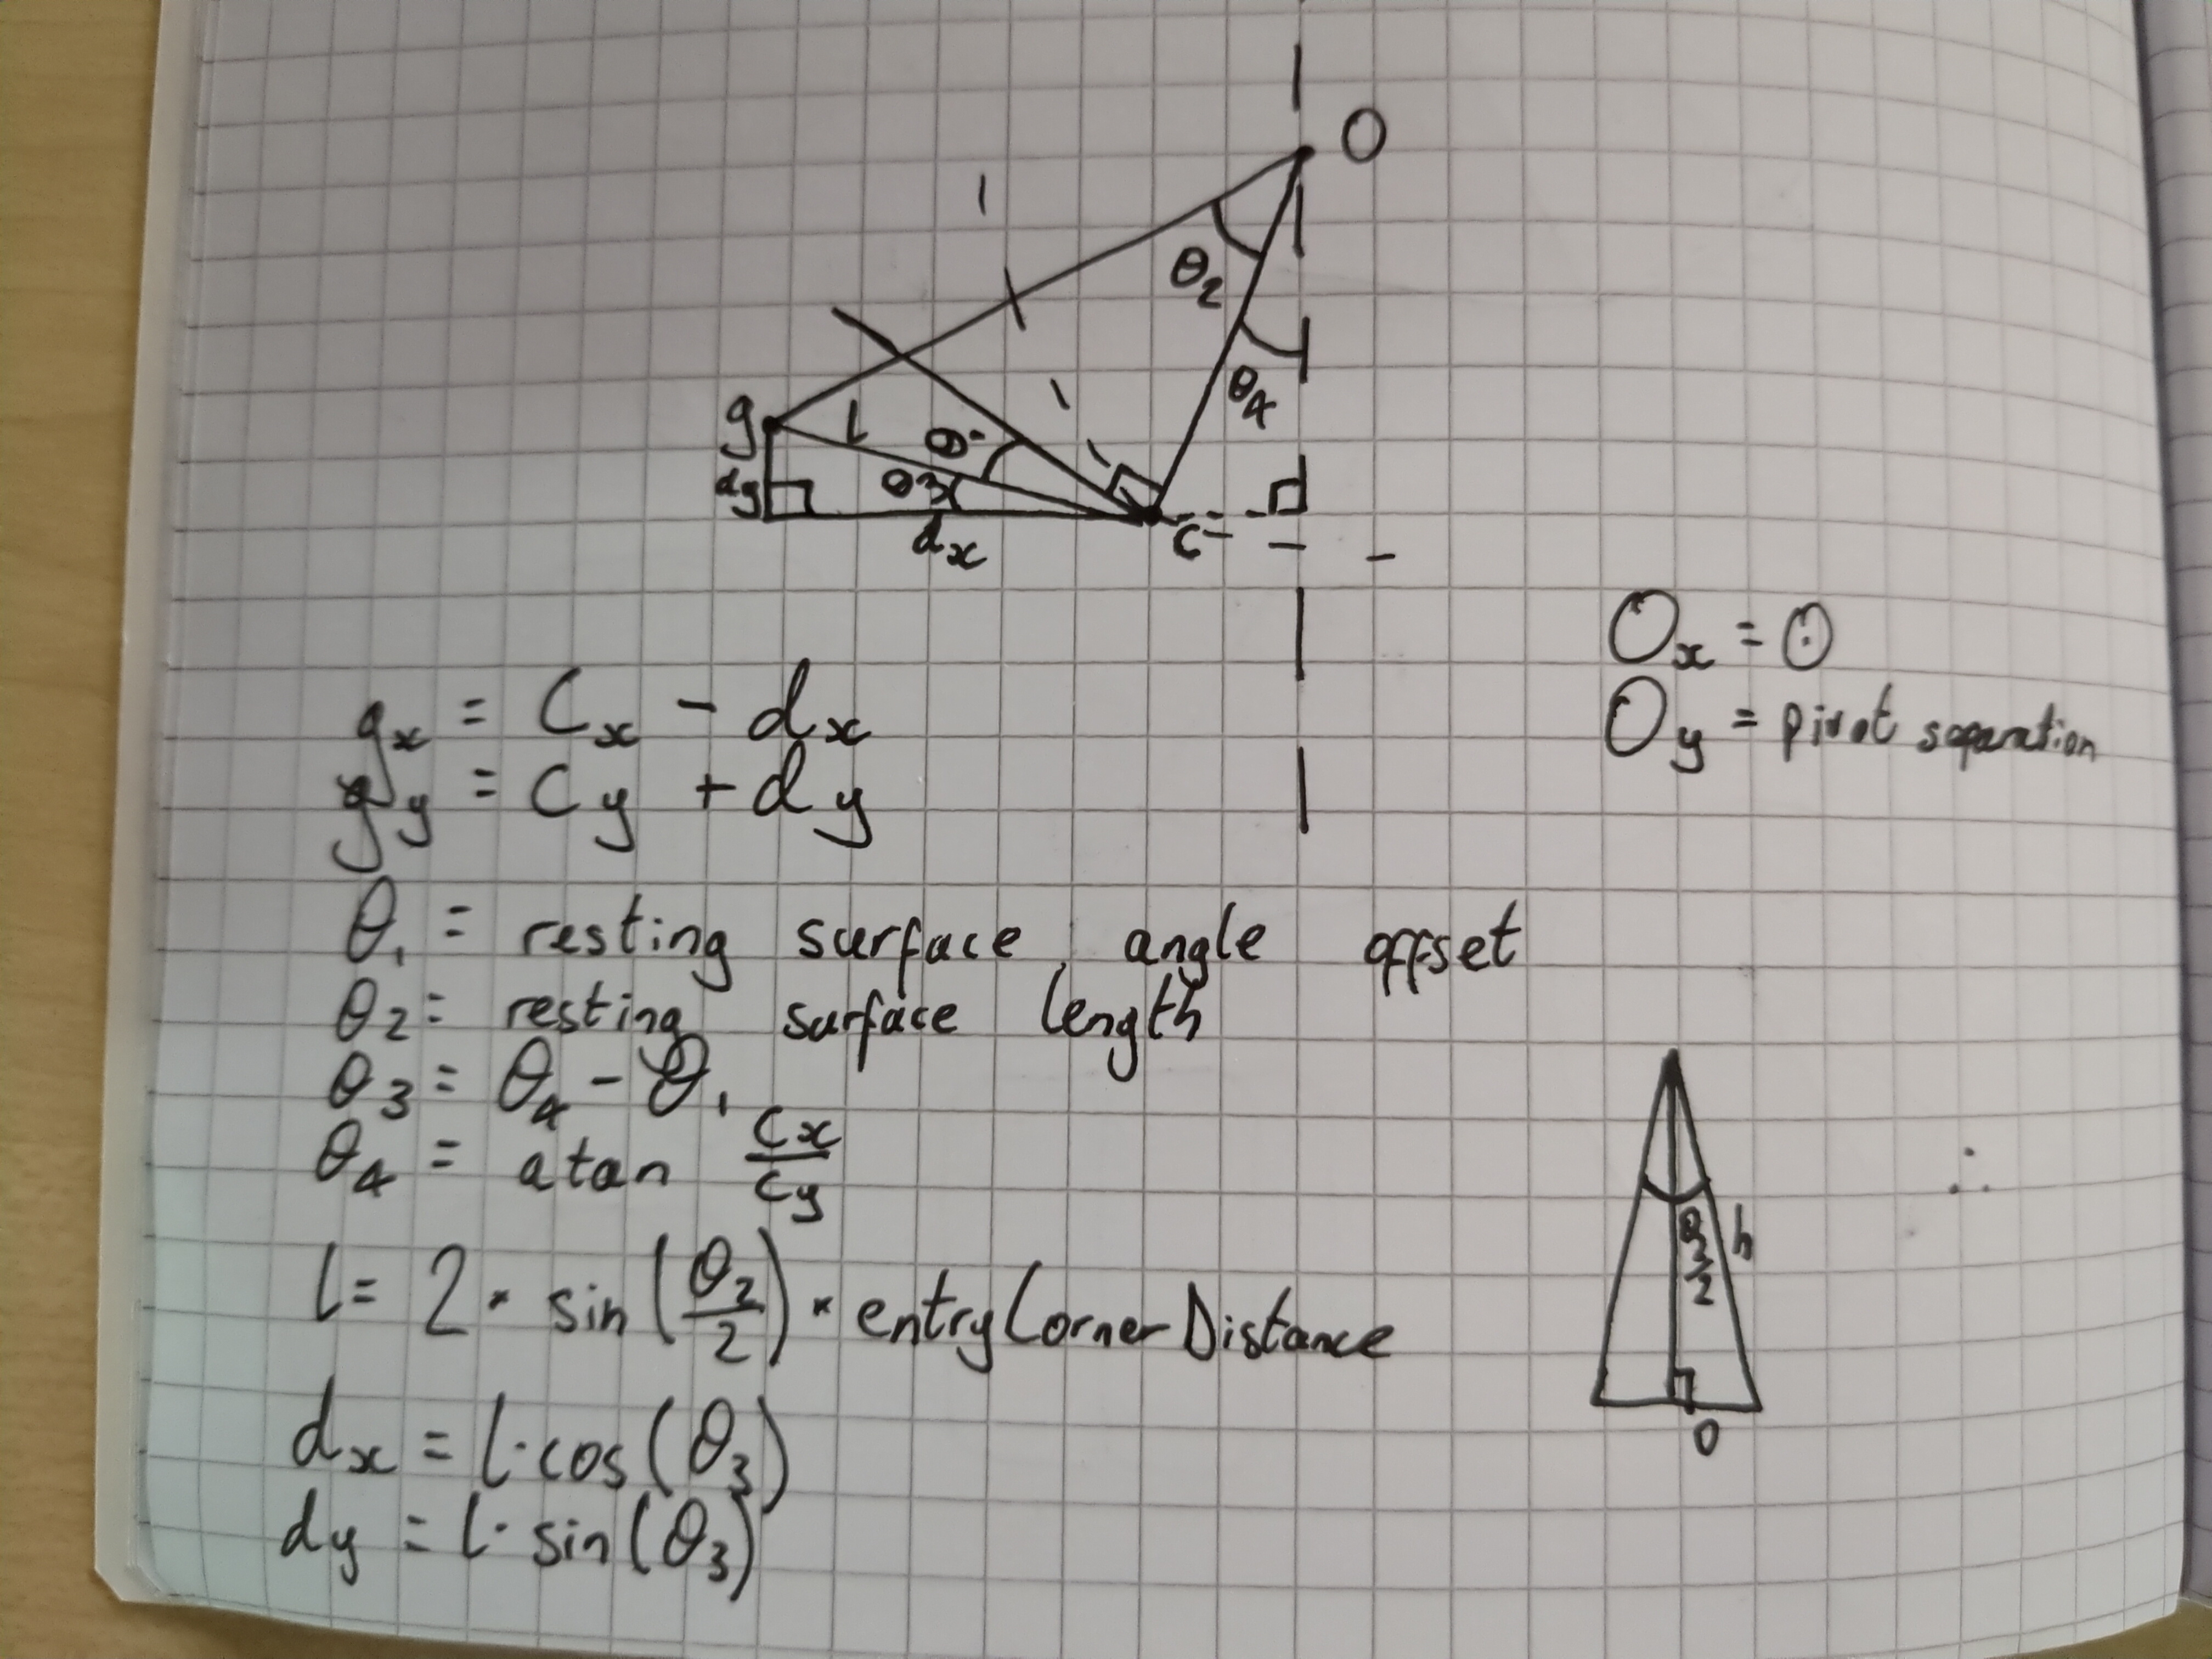 O
θ₂
θ₄
g
l
θ₁
dy
θ3
dx
C
Ox = 0
Oy = pivot separation
gx = Cx - dx
gy = Cy + dy
θ₁ = resting surface angle offset
θ2 = resting surface length
θ3 = θ4 - θ₁
θ4 = atan Cx/Cy
l = 2 · sin(θ2/2) · entryCornerDistance
θ2/2
h
O
dx = l·cos(θ3)
dy = l·sin(θ3)